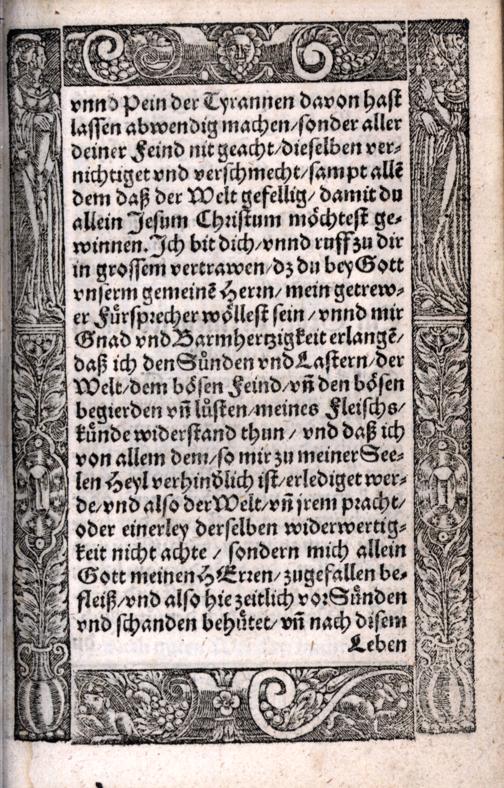 vnnd Pein der Tyrannen davon hast
lassen abwendig machen/sonder aller
deiner Feind nit geacht/dieselben ver⸗
nichtiget vnd verschmecht/sampt allẽ
dem daß der Welt gefellig/damit du
allein Jesum Christum möchtest ge⸗
winnen. Ich bit dich/vnnd ruff zu dir
in grossem vertrawen/dz du bey Gott
vnserm gemeinẽ Herrn/mein getrew⸗
er Fürsprecher wöllest sein/vnnd mir
Gnad vnd Barmhertzigkeit erlangẽ/
daß ich den Sünden vnd Lastern/der
Welt/dem bösen Feind/vñ den bösen
begierden vñ lüsten/meines Fleischs/
künde widerstand thun/vnd daß ich
von allem dem/so mir zu meiner See⸗
len Heyl verhindlich ist/erlediget wer⸗
de/vnd also der Welt/vñ jrem pracht/
oder einerley derselben widerwertig⸗
keit nicht achte/sondern mich allein
Gott meinen HErren/zugefallen be⸗
fleiß/vnd also hie zeitlich vor Sünden
vnd schanden behütet/vñ nach disem
Leben